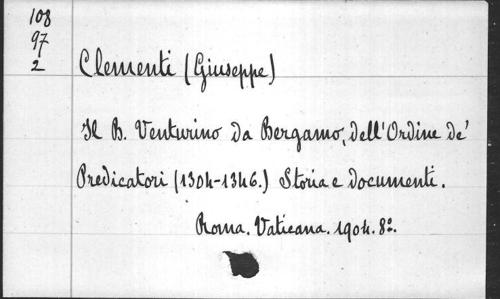 108
97
2
Clementi (Giuseppe)
Il B. Venturino da Bergamo, dell'Ordine de'
Predicatori (1304-1346.) Storia e documenti.
Roma. Vaticana. 1904. 8º.